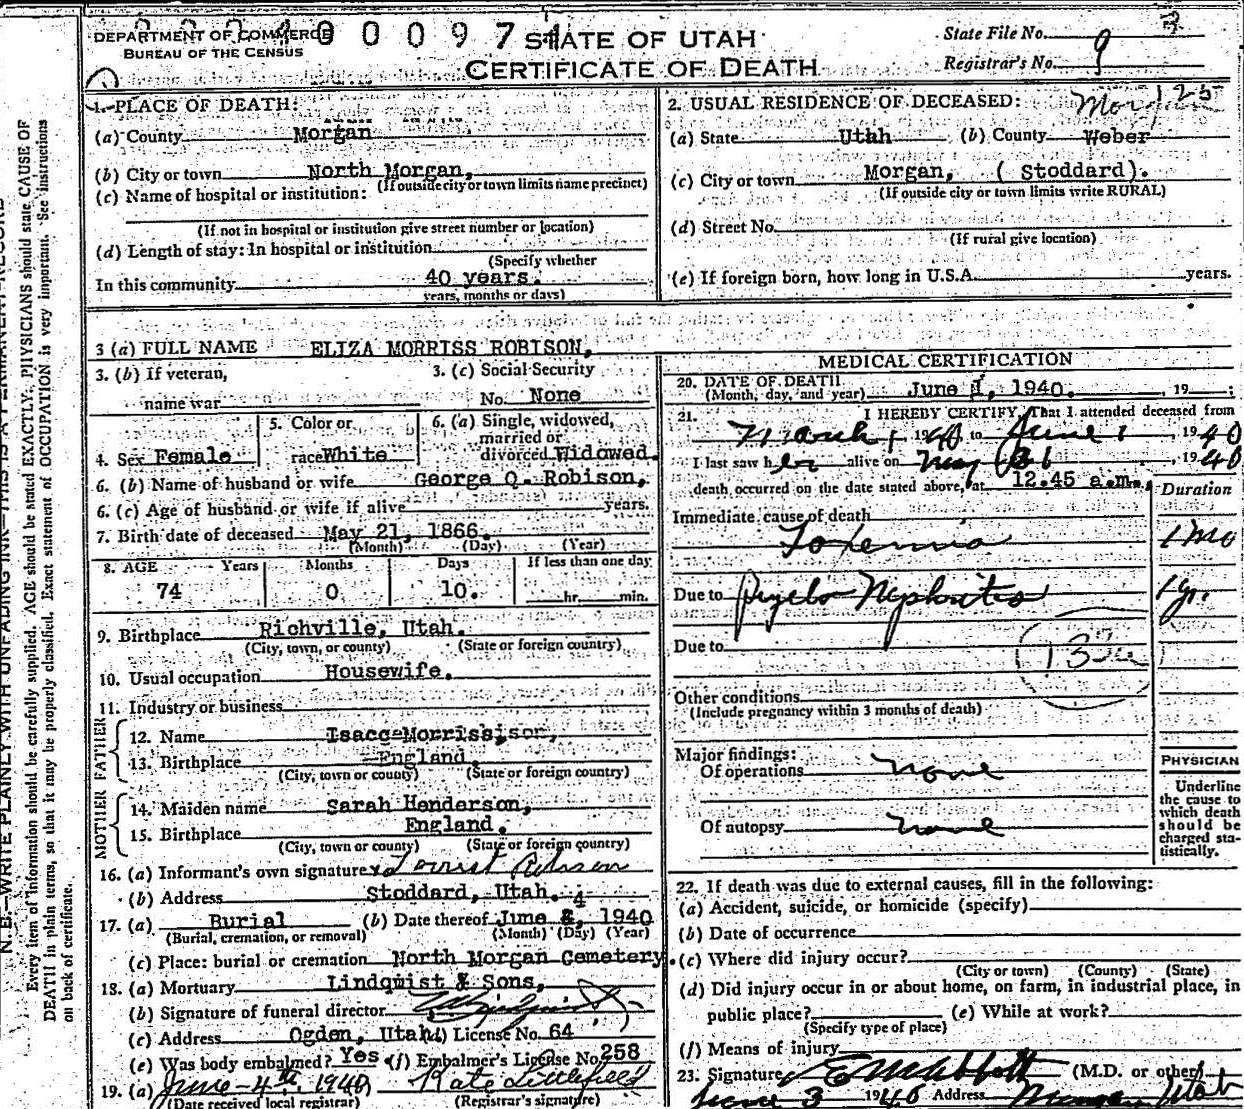 DEPARTMENT OF COMMERCE
BUREAU OF THE CENSUS
0 0 9 7
STATE OF UTAH
CERTIFICATE OF DEATH
State File No.
Registrar's No. 9
1. PLACE OF DEATH:
(a) County Morgan
(b) City or town North Morgan,
(If outside city or town limits name precinct)
(c) Name of hospital or institution:
(If not in hospital or institution give street number or location)
(d) Length of stay: In hospital or institution
(Specify whether
In this community 40 years.
years, months or days)
2. USUAL RESIDENCE OF DECEASED:
(a) State Utah (b) County Weber
(c) City or town Morgan, ( Stoddard).
(If outside city or town limits write RURAL)
(d) Street No.
(If rural give location)
(e) If foreign born, how long in U.S.A. years.
3 (a) FULL NAME ELIZA MORRISS ROBISON,
3. (b) If veteran,
name war
3. (c) Social Security
No. None
4. Sex Female
5. Color or
race White
6. (a) Single, widowed,
married or
divorced Widowed.
6. (b) Name of husband or wife George Q. Robison,
6. (c) Age of husband or wife if alive years.
7. Birth date of deceased May 21, 1866.
(Month) (Day) (Year)
8. AGE Years Months Days If less than one day
74 0 10. hr. min.
9. Birthplace Richville, Utah.
(City, town, or county) (State or foreign country)
10. Usual occupation Housewife.
11. Industry or business
FATHER
12. Name
13. Birthplace England.
(City, town or county) (State or foreign country)
MOTHER
14. Maiden name Sarah Henderson,
15. Birthplace England.
(City, town or county) (State or foreign country)
16. (a) Informant's own signature Robison
(b) Address Stoddard, Utah.
17. (a) Burial (b) Date thereof June 4, 1940
(Burial, cremation, or removal) (Month) (Day) (Year)
(c) Place: burial or cremation North Morgan Cemetery.
18. (a) Mortuary Lindquist & Sons,
(b) Signature of funeral director
(c) Address Ogden, Utah. (d) License No. 64
(e) Was body embalmed? Yes (f) Embalmer's License No. 258
19. (a) June - 4th, 1940, Kate Littlefield
(Date received local registrar) (Registrar's signature)
MEDICAL CERTIFICATION
20. DATE OF DEATH
(Month, day, and year) June 1, 1940. , 19 ;
21. I HEREBY CERTIFY, That I attended deceased from
March 1, 1940, to June 1, 1940
I last saw her alive on May 31, 1940
death occurred on the date stated above, at 12.45 a.m.
Duration
Immediate cause of death
Toxemia 1 mo
Due to Pyelo Nephritis 1 yr.
Due to
Other conditions
(Include pregnancy within 3 months of death)
Major findings:
Of operations none
Of autopsy none
PHYSICIAN
Underline
the cause to
which death
should be
charged sta-
tistically.
22. If death was due to external causes, fill in the following:
(a) Accident, suicide, or homicide (specify)
(b) Date of occurrence
(c) Where did injury occur?
(City or town) (County) (State)
(d) Did injury occur in or about home, on farm, in industrial place, in
public place? (e) While at work?
(Specify type of place)
(f) Means of injury
23. Signature (M.D. or other)
June 3 1940 Address Morgan Utah
N. B.—WRITE PLAINLY, WITH UNFADING INK—THIS IS A PERMANENT RECORD
Every item of information should be carefully supplied. AGE should be stated EXACTLY. PHYSICIANS should state CAUSE OF
DEATH in plain terms, so that it may be properly classified. Exact statement of OCCUPATION is very important. See instructions
on back of certificate.